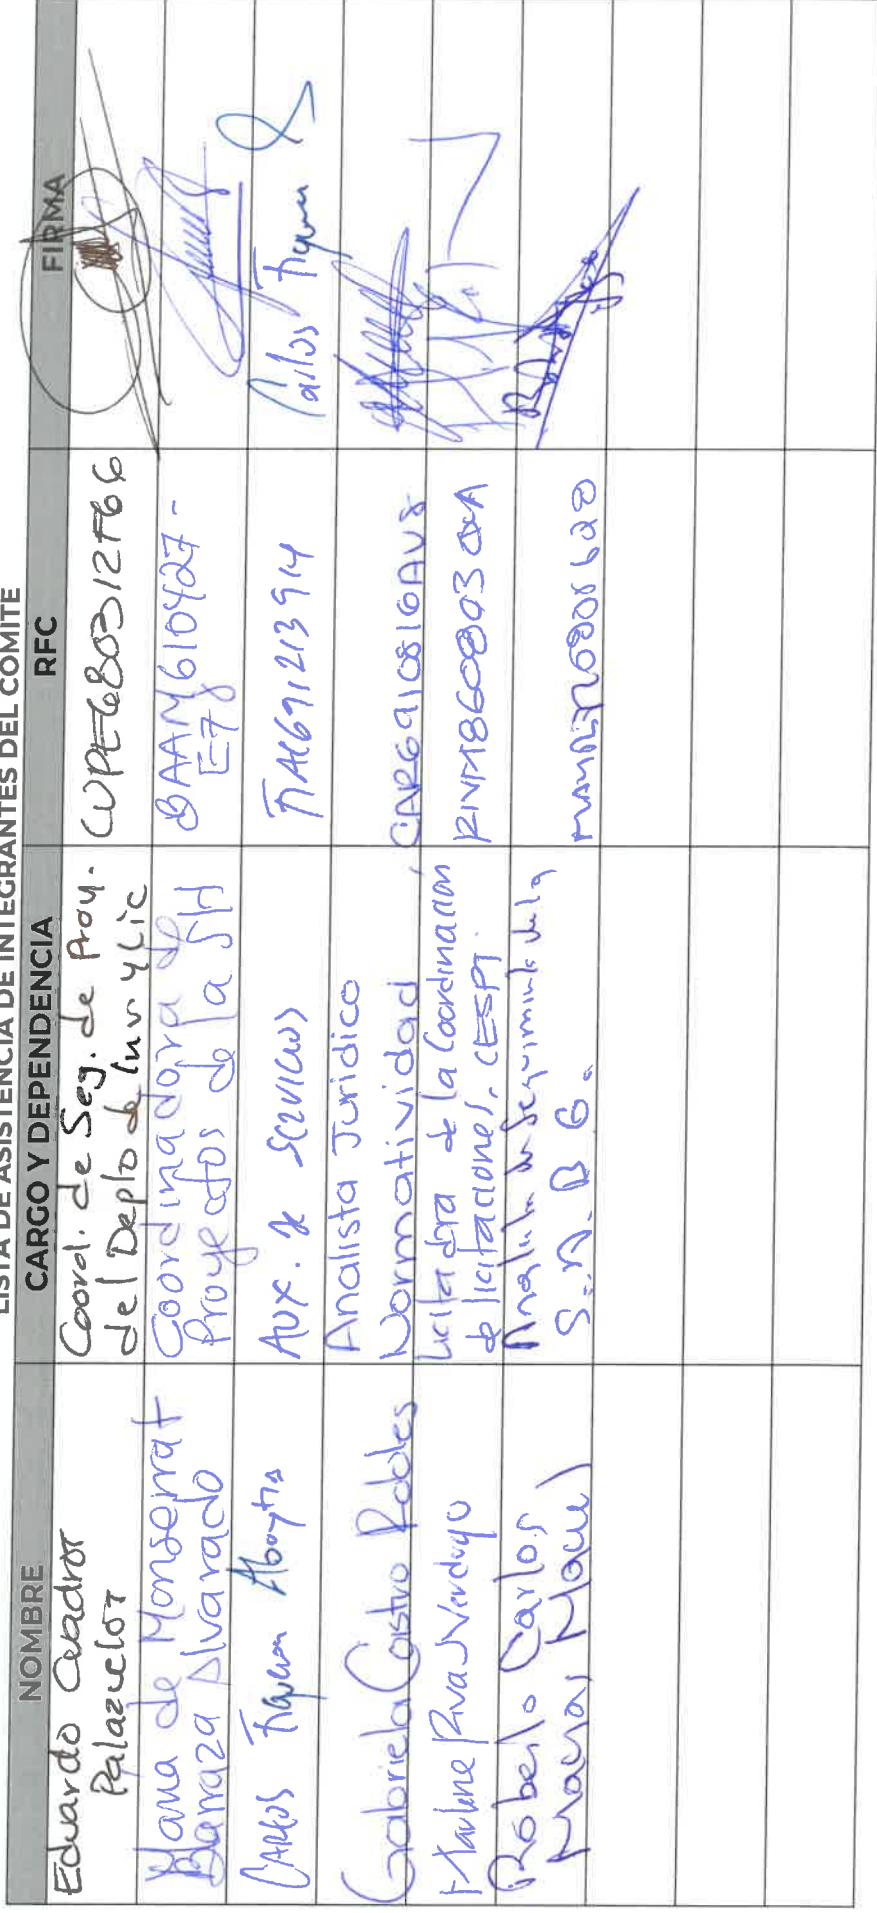 LISTA DE ASISTENCIA DE INTEGRANTES DEL COMITE
NOMBRE CARGO Y DEPENDENCIA RFC FIRMA
Eduardo Cuadros
Palazuelos
Coord. de Seg. de Proy.
del Depto de Inv y Lic
CUPE680312F66
Maria de Monserrat
Barraza Alvarado
Coordinadora de
Proyectos de la SH
BAAM610427-
E78
Carlos Figueroa Aboytia
Aux. de Servicios
FIAC691213914
Carlos Figueroa
Gabriela Castro Robles
Analista Juridico
Normatividad
CARG910816AV8
Marlene Rivas Verdugo
Licitadora de la Coordinacion
de licitaciones, CESPT.
RIVM860803
Roberto Carlos
Macias Macias
Analista de Seguimiento de la
S.A.B.G.